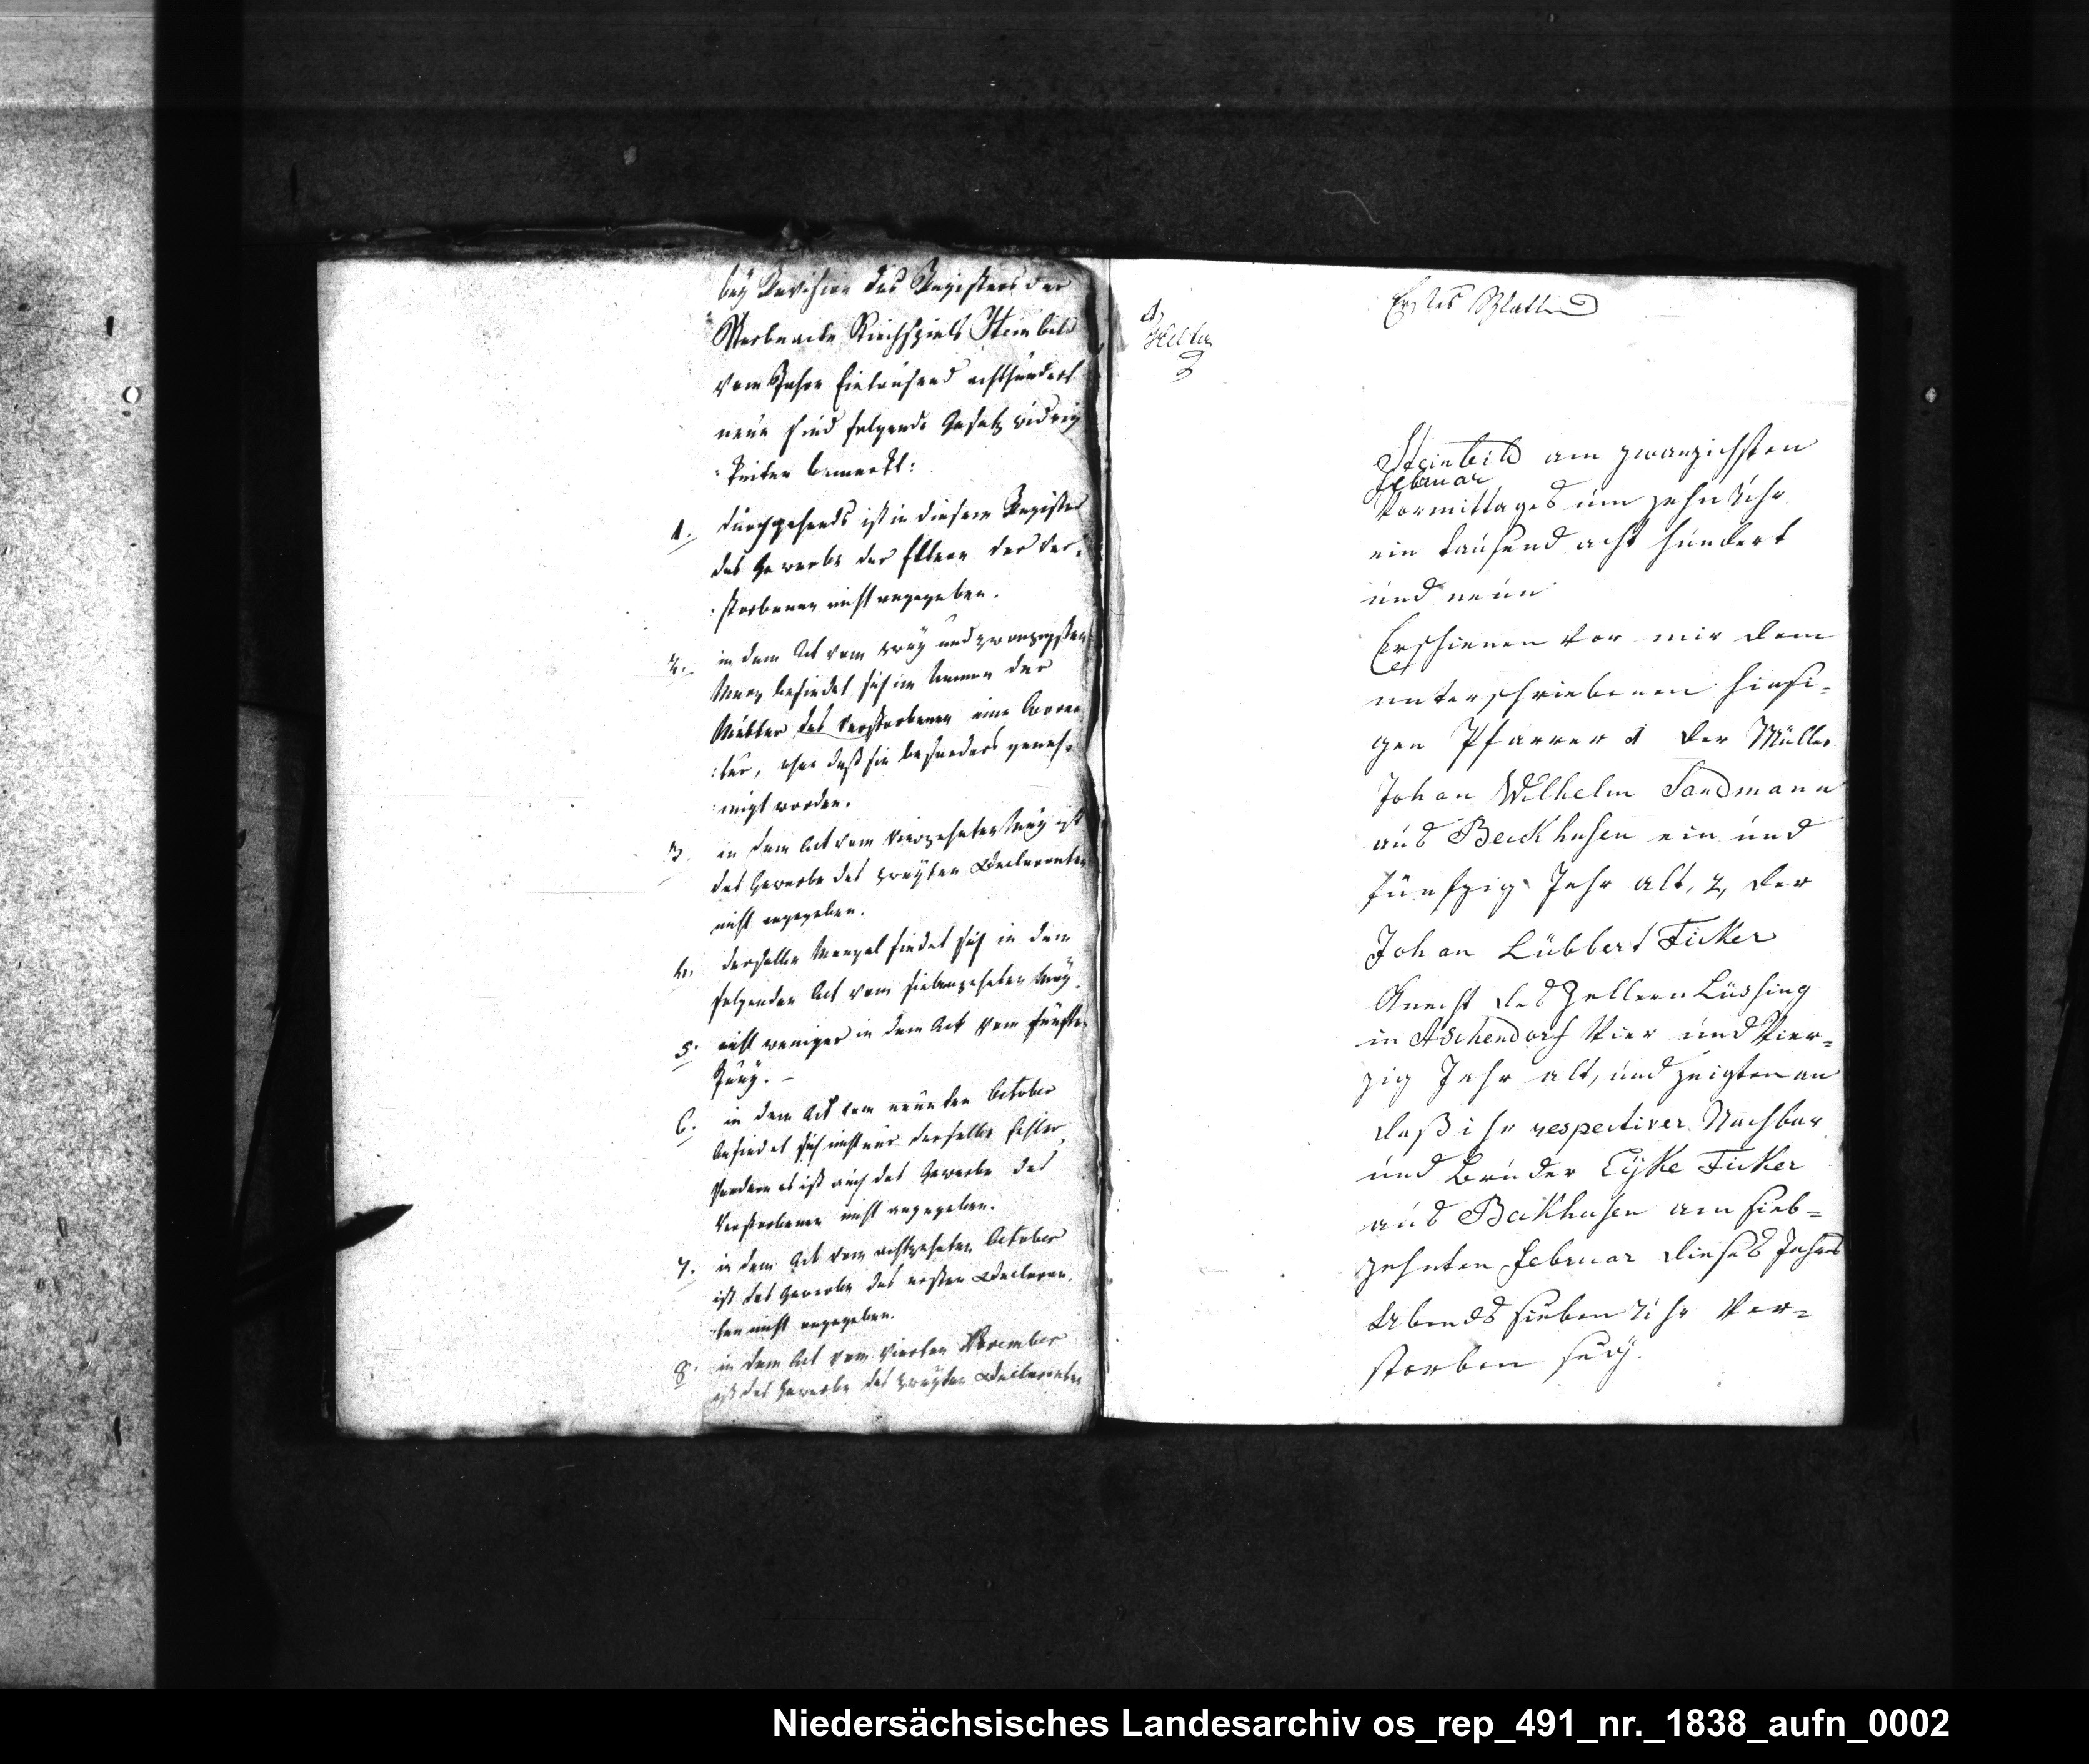 bey Revision des Registers der
Sterbeacte Kirchspiels Steinbild
vom Jahre Eintausend achthundert
neun sind folgende Gesetzwidrig
:keiten bemerkt:
1. durchgehends ist in diesem Register
das Gewerbe der Eltern der Ver:
:storbenen nicht angegeben.
2. in dem Act vom zwey und zwanzigsten
März befindet sich im Namen der
Mutter des Verstorbenen eine Correc
:tur, ohne daß sie besonders geneh:
:migt worden.
3. in dem Act vom vierzehnten May ist
das Gewerbe des zweyten Declaranten
nicht angegeben.
4. derselbe Mangel findet sich in dem
folgenden Act vom siebenzehnten May.
5. nicht weniger in dem Act vom fünften
Juny. –
6. in dem Act vom neunten October
befindet sich nicht nur derselbe Fehler
sondern es ist auch das Gewerbe des
Verstorbenen nicht angegeben.
7. in dem Act vom achtzehnten October
ist das Gewerbe des ersten Declaran:
:ten nicht angegeben.
8. in dem Act vom vierten November
ist das Gewerbe des zweyten Declaranten
Erstes Blatt
Steinbild am zwanzichsten
Februar
Vormittages um zehn Uhr
ein tausend acht hundert
und neun
Erschienen vor mir dem
unterschriebenen hiesi-
gen Pfarrer 1 der Müller
Johan Wilhelm Sandmann
aus Beckhusen ein und
fünfzig Jahr alt, 2, der
Johan Lübbert Ficker
Knecht des Zellern Lüssing
in Aschendorf vier und vier=
zig Jahr alt, und zeigten an
daß ihr respectiver Nachbar
und Bruder Eyke Ficker
aus Beckhusen am sieb=
zehnten Februar dieses Jahres
Abends sieben Uhr ver=
storben sey.
Niedersächsisches Landesarchiv os_rep_491_nr._1838_aufn_0002